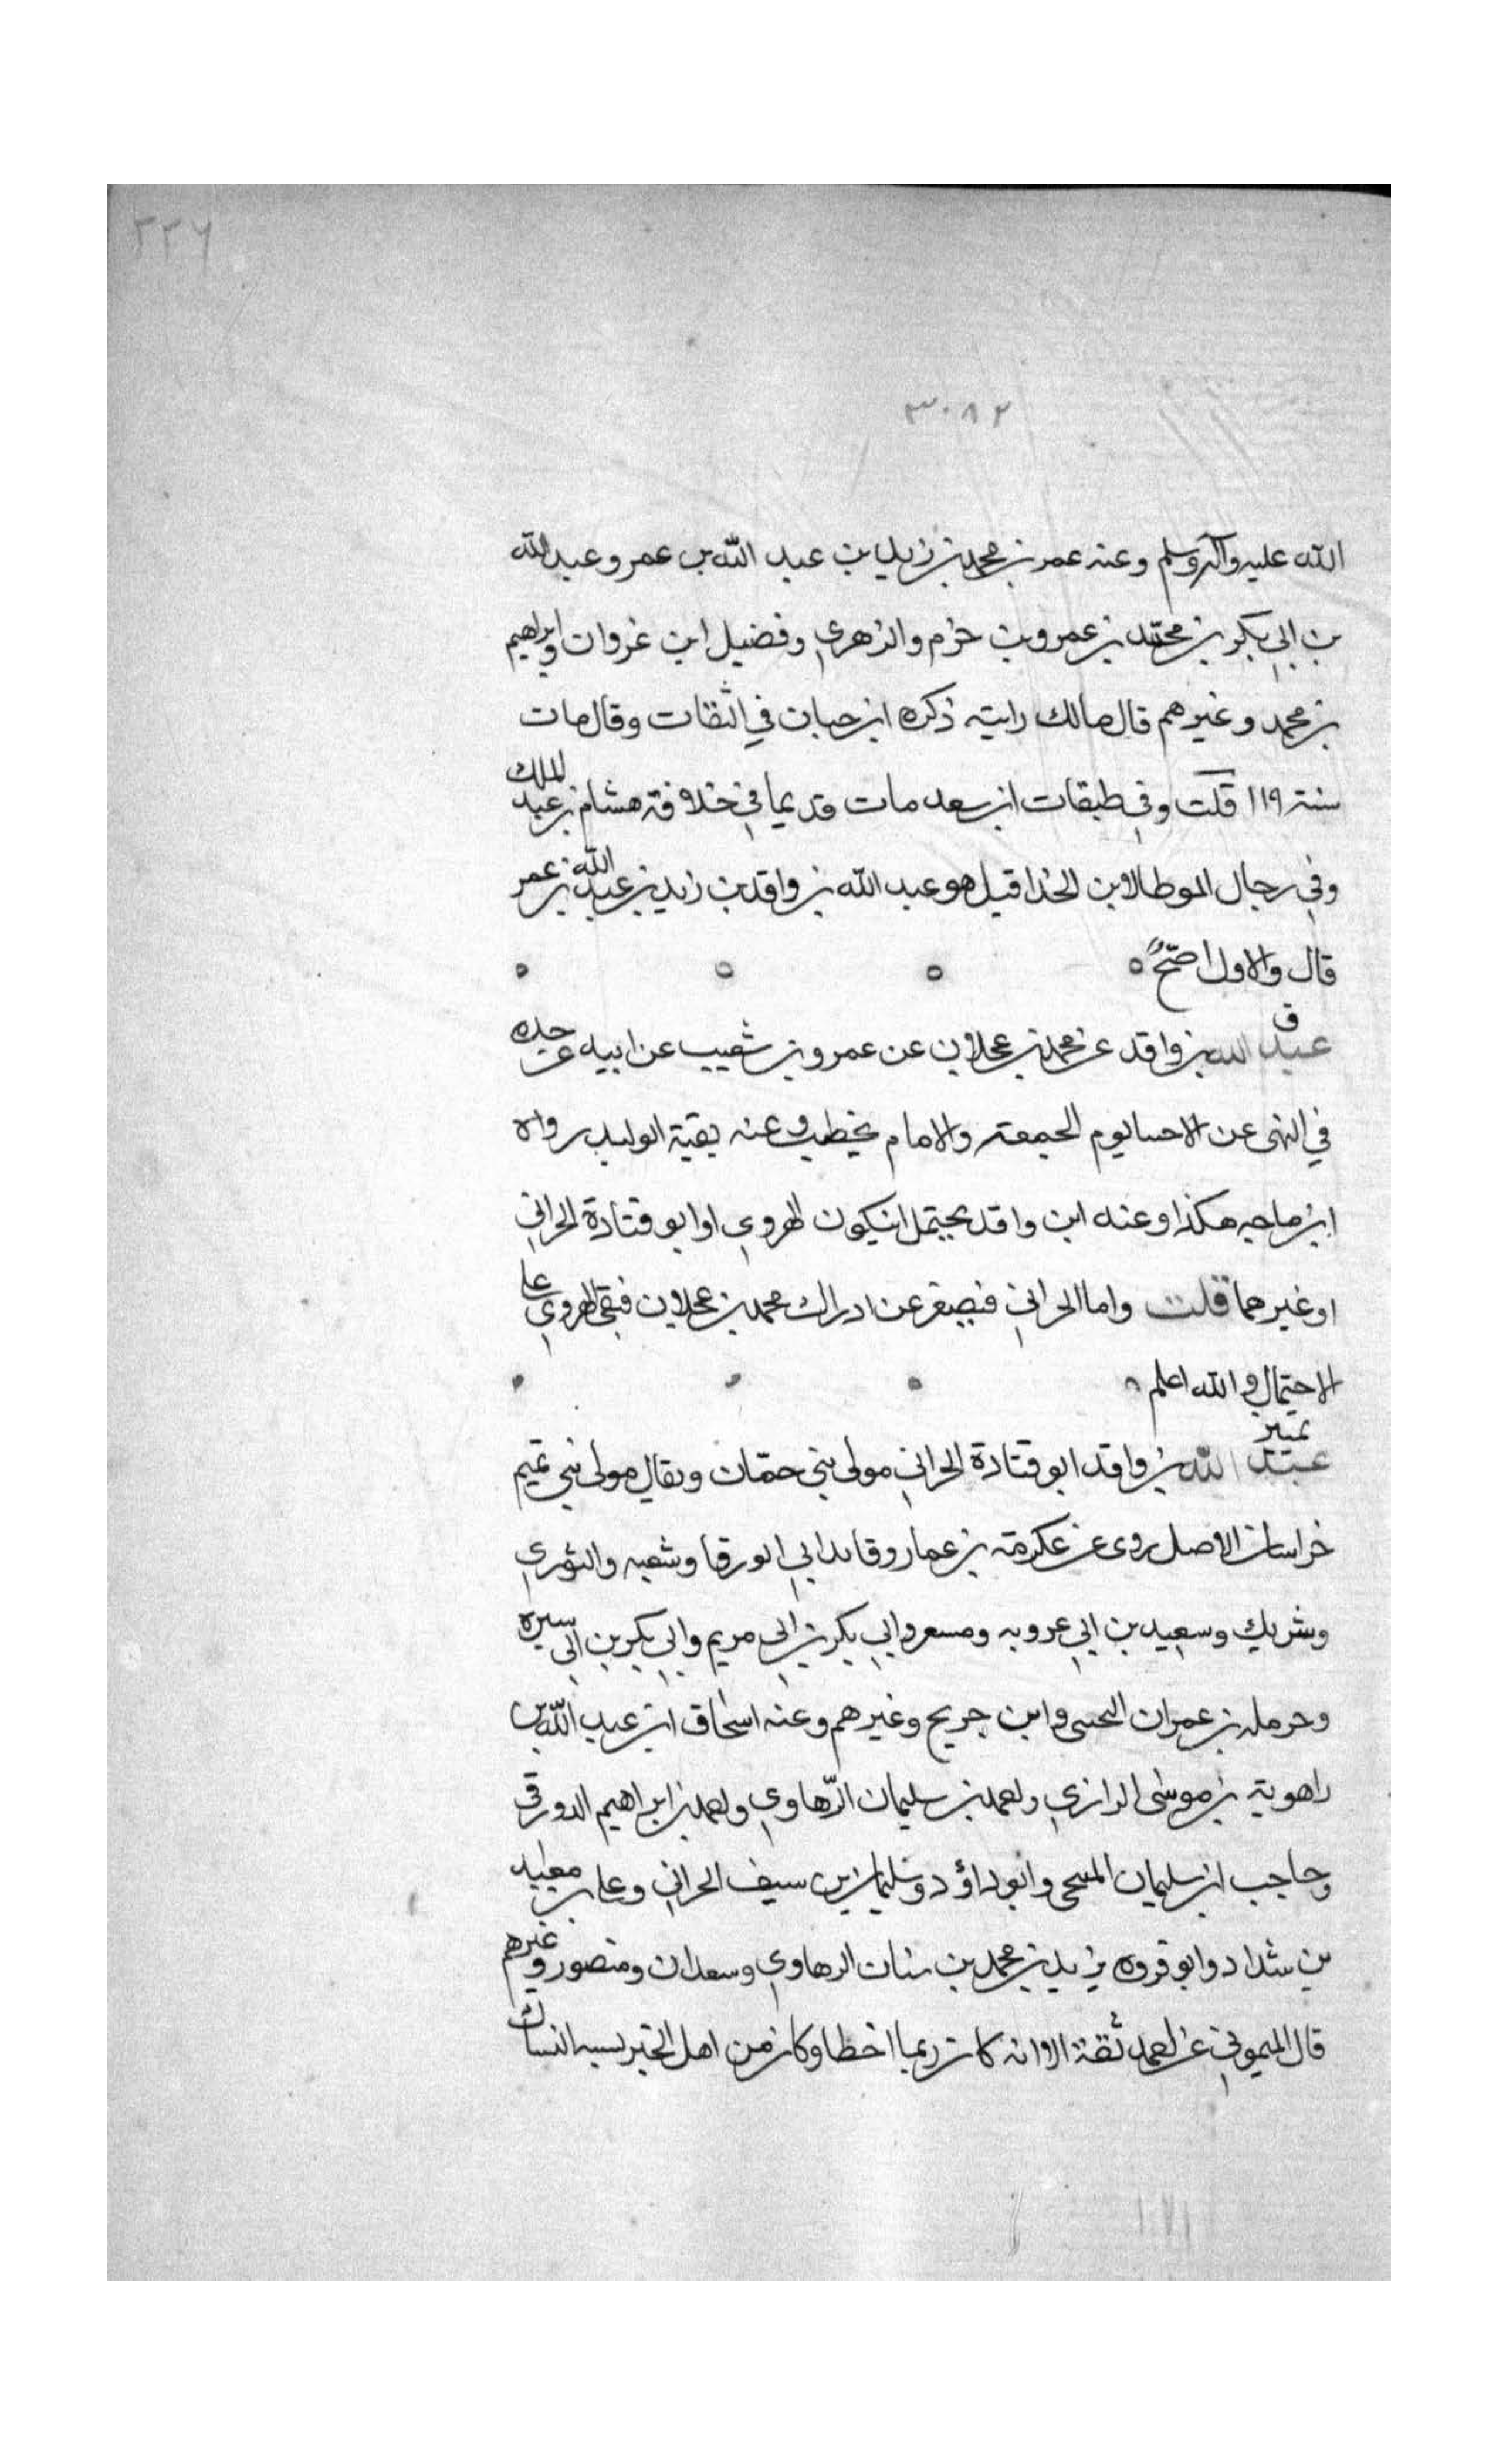 ٢٢٦
٣٠٨٢
الله عليه وآله وسلم وعنه عمر بن محمد بن زيد بن عبد الله بن عمر وعبد الله
بن ابي بكر بن محمد بن عمرو بن حزم والزهري وفضيل ابن غزوان وابراهيم
بن محمد وغيرهم قال مالك رايته ذكره ابن حبان في الثقات وقال مات
سنة ١١٩ قلت وفي طبقات ابن سعد مات قديما في خلافة هشام بن عبد الملك
وفي رجال الموطا لابن الحذا قيل هو عبد الله بن واقد بن زيد بن عبد الله بن عمر
قال والاول اصح
ق
عبد الله بن واقد عن محمد بن عجلان عن عمرو بن شعيب عن ابيه عن جده
في النهى عن الاحبا يوم الجمعة والامام يخطب وعنه بقية الوليد رواه
ابن ماجه هكذا وعنه ابن واقد يحتمل ان يكون الهروي او ابو قتادة الحراني
او غيرهما قلت واما الحراني فيصغر عن ادراك محمد بن عجلان فبقى الهروي على
الاحتمال والله اعلم
تمييز
عبد الله بن واقد ابو قتادة الحراني مولى بني حمان ويقال مولى بني تميم
خراسان الاصل روى عن عكرمة بن عمار وقائد ابي الورقا وشعبه والثوري
وشريك وسعيد بن ابي عروبه ومسعر وابي بكر بن ابي مريم وابي بكر بن ابي سبره
وحرمله بن عمران التجيبى وابن جريج وغيرهم وعنه اسحاق ابن عبد الله بن
راهوية بن موسى الرازي واحمد بن سليمان الرهاوي واحمد بن ابراهيم الدورقي
وحاجب ابن سليمان المنبجى وابو داؤد وسليمان بن سيف الحراني وعلي بن معبد
بن شداد وابو فروه يزيد بن محمد بن سنان الرهاوي وسعدان ومنصور وغيرهم
قال الميموني عن احمد ثقة الا انه كان ربما اخطا وكان من اهل الخير يشبه النساك